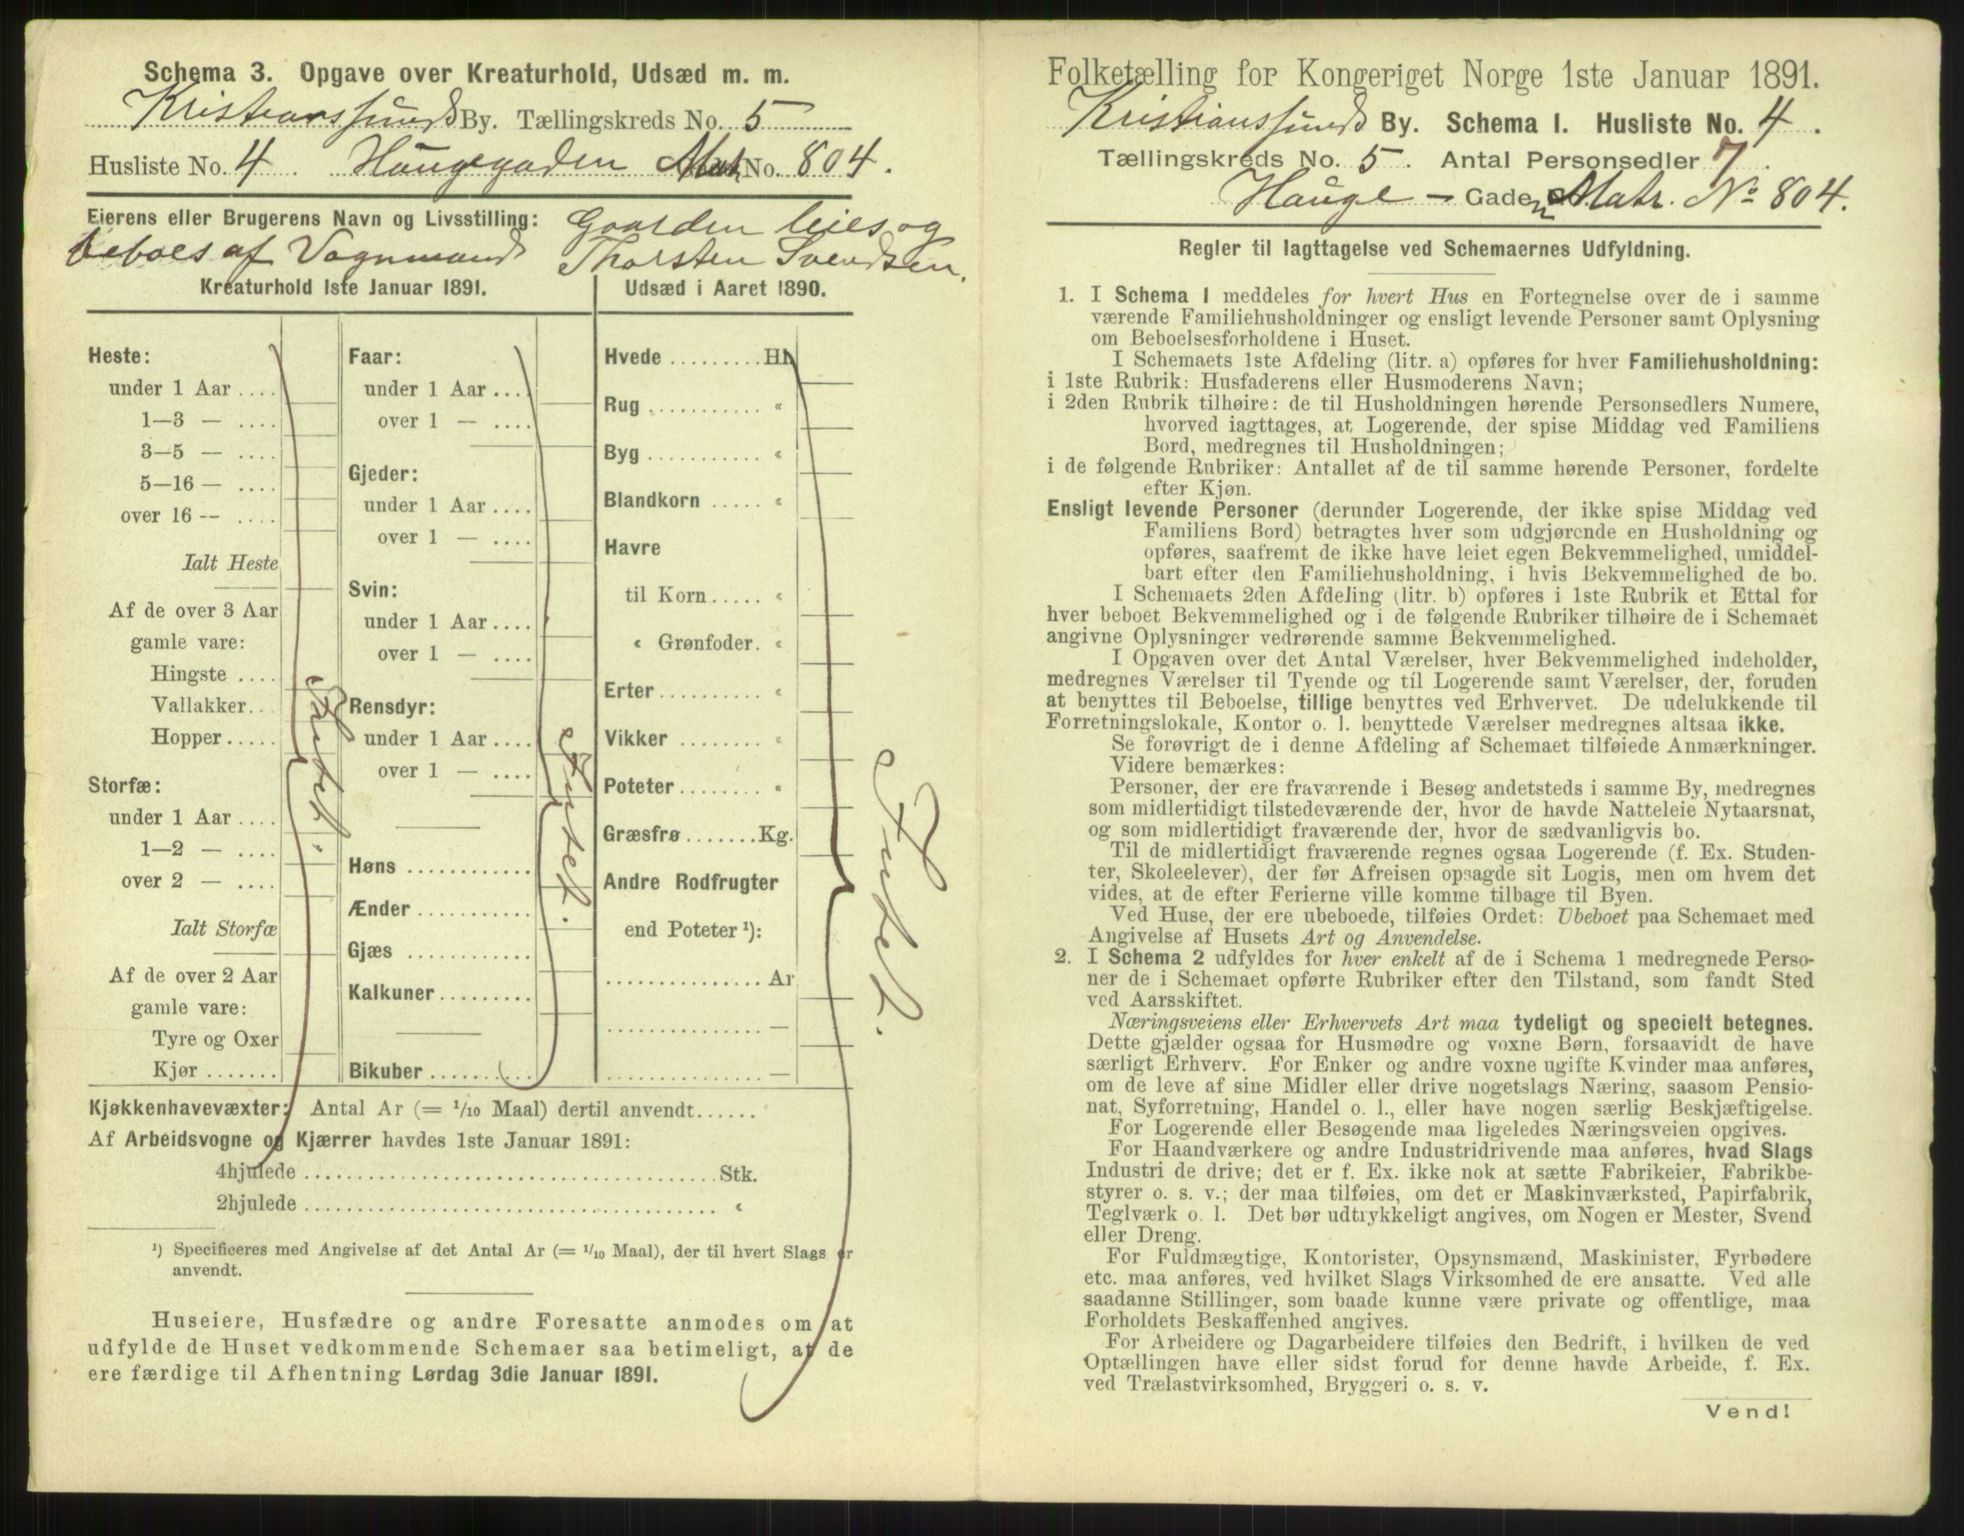 Schema 3. Opgave over Kreaturhold, Udsæd m. m.
Kristianssunds By. Tællingskreds No. 5
Husliste No. 4. Haugegaden Matr No. 804.
Eierens eller Brugerens Navn og Livsstilling: Gaarden leies og
beboes af Vognmand Thorsten Svendsen.
Kreaturhold 1ste Januar 1891.
Heste:
under 1 Aar ....
1—3 — ....
3—5 — ....
5—16 — ....
over 16 -- ....
Ialt Heste
Af de over 3 Aar
gamle vare:
Hingste ....
Vallakker...
Hopper .....
Storfæ:
under 1 Aar ....
1—2 — ....
over 2 — ....
Ialt Storfæ
Af de over 2 Aar
gamle vare:
Tyre og Oxer
Kjør .......
Intet.
Faar:
under 1 Aar ....
over 1 — ....
Gjeder:
under 1 Aar ....
over 1 — ....
Svin:
under 1 Aar ....
over 1 — ....
Rensdyr:
under 1 Aar ....
over 1 — ....
Høns ............
Ænder ...........
Gjæs ............
Kalkuner.........
Bikuber ..........
Intet.
Udsæd i Aaret 1890.
Hvede ......... Hl.
Rug ........... «
Byg ........... «
Blandkorn ..... «
Havre
til Korn..... «
« Grønfoder. «
Erter.......... «
Vikker ........ «
Poteter........ «
Græsfrø .......Kg.
Andre Rodfrugter
end Poteter ¹):
............... Ar
............... —
............... —
Intet.
Kjøkkenhavevæxter: Antal Ar (= 1/10 Maal) dertil anvendt......
Af Arbeidsvogne og Kjærrer havdes 1ste Januar 1891:
4hjulede ........................................Stk.
2hjulede ........................................ «
¹) Specificeres med Angivelse af det Antal Ar (= 1/10 Maal), der til hvert Slags er
anvendt.
Huseiere, Husfædre og andre Foresatte anmodes om at
udfylde de Huset vedkommende Schemaer saa betimeligt, at de
ere færdige til Afhentning Lørdag 3die Januar 1891.
Folketælling for Kongeriget Norge 1ste Januar 1891.
Kristianssunds By. Schema I. Husliste No. 4.
Tællingskreds No. 5. Antal Personsedler 7.
Hauge - Gaden Matr. No 804.
Regler til Iagttagelse ved Schemaernes Udfyldning.
1. I Schema 1 meddeles for hvert Hus en Fortegnelse over de i samme
værende Familiehusholdninger og ensligt levende Personer samt Oplysning
om Beboelsesforholdene i Huset.
I Schemaets 1ste Afdeling (litr. a) opføres for hver Familiehusholdning:
i 1ste Rubrik: Husfaderens eller Husmoderens Navn;
i 2den Rubrik tilhøire: de til Husholdningen hørende Personsedlers Numere,
hvorved iagttages, at Logerende, der spise Middag ved Familiens
Bord, medregnes til Husholdningen;
i de følgende Rubriker: Antallet af de til samme hørende Personer, fordelte
efter Kjøn.
Ensligt levende Personer (derunder Logerende, der ikke spise Middag ved
Familiens Bord) betragtes hver som udgjørende en Husholdning og
opføres, saafremt de ikke have leiet egen Bekvemmelighed, umiddel-
bart efter den Familiehusholdning, i hvis Bekvemmelighed de bo.
I Schemaets 2den Afdeling (litr. b) opføres i 1ste Rubrik et Ettal for
hver beboet Bekvemmelighed og i de følgende Rubriker tilhøire de i Schemaet
angivne Oplysninger vedrørende samme Bekvemmelighed.
I Opgaven over det Antal Værelser, hver Bekvemmelighed indeholder,
medregnes Værelser til Tyende og til Logerende samt Værelser, der, foruden
at benyttes til Beboelse, tillige benyttes ved Erhvervet. De udelukkende til
Forretningslokale, Kontor o. l. benyttede Værelser medregnes altsaa ikke.
Se forøvrigt de i denne Afdeling af Schemaet tilføiede Anmærkninger.
Videre bemærkes:
Personer, der ere fraværende i Besøg andetsteds i samme By, medregnes
som midlertidigt tilstedeværende der, hvor de havde Natteleie Nytaarsnat,
og som midlertidigt fraværende der, hvor de sædvanligvis bo.
Til de midlertidigt fraværende regnes ogsaa Logerende (f. Ex. Studen-
ter, Skoleelever), der før Afreisen opsagde sit Logis, men om hvem det
vides, at de efter Ferierne ville komme tilbage til Byen.
Ved Huse, der ere ubeboede, tilføies Ordet: Ubeboet paa Schemaet med
Angivelse af Husets Art og Anvendelse.
2. I Schema 2 udfyldes for hver enkelt af de i Schema 1 medregnede Perso-
ner de i Schemaet opførte Rubriker efter den Tilstand, som fandt Sted
ved Aarsskiftet.
Næringsveiens eller Erhvervets Art maa tydeligt og specielt betegnes.
Dette gjælder ogsaa for Husmødre og voxne Børn, forsaavidt de have
særligt Erhverv. For Enker og andre voxne ugifte Kvinder maa anføres,
om de leve af sine Midler eller drive nogetslags Næring, saasom Pensio-
nat, Syforretning, Handel o. l., eller have nogen særlig Beskjæftigelse.
For Logerende eller Besøgende maa ligeledes Næringsveien opgives.
For Haandværkere og andre Industridrivende maa anføres, hvad Slags
Industri de drive; det er f. Ex. ikke nok at sætte Fabrikeier, Fabrikbe-
styrer o. s. v.; der maa tilføies, om det er Maskinværksted, Papirfabrik,
Teglværk o. l. Det bør udtrykkeligt angives, om Nogen er Mester, Svend
eller Dreng.
For Fuldmægtige, Kontorister, Opsynsmænd, Maskinister, Fyrbødere
etc. maa anføres, ved hvilket Slags Virksomhed de ere ansatte. Ved alle
saadanne Stillinger, som baade kunne være private og offentlige, maa
Forholdets Beskaffenhed angives.
For Arbeidere og Dagarbeidere tilføies den Bedrift, i hvilken de ved
Optællingen have eller sidst forud for denne havde Arbeide, f. Ex.
ved Trælastvirksomhed, Bryggeri o. s. v.
Vend!